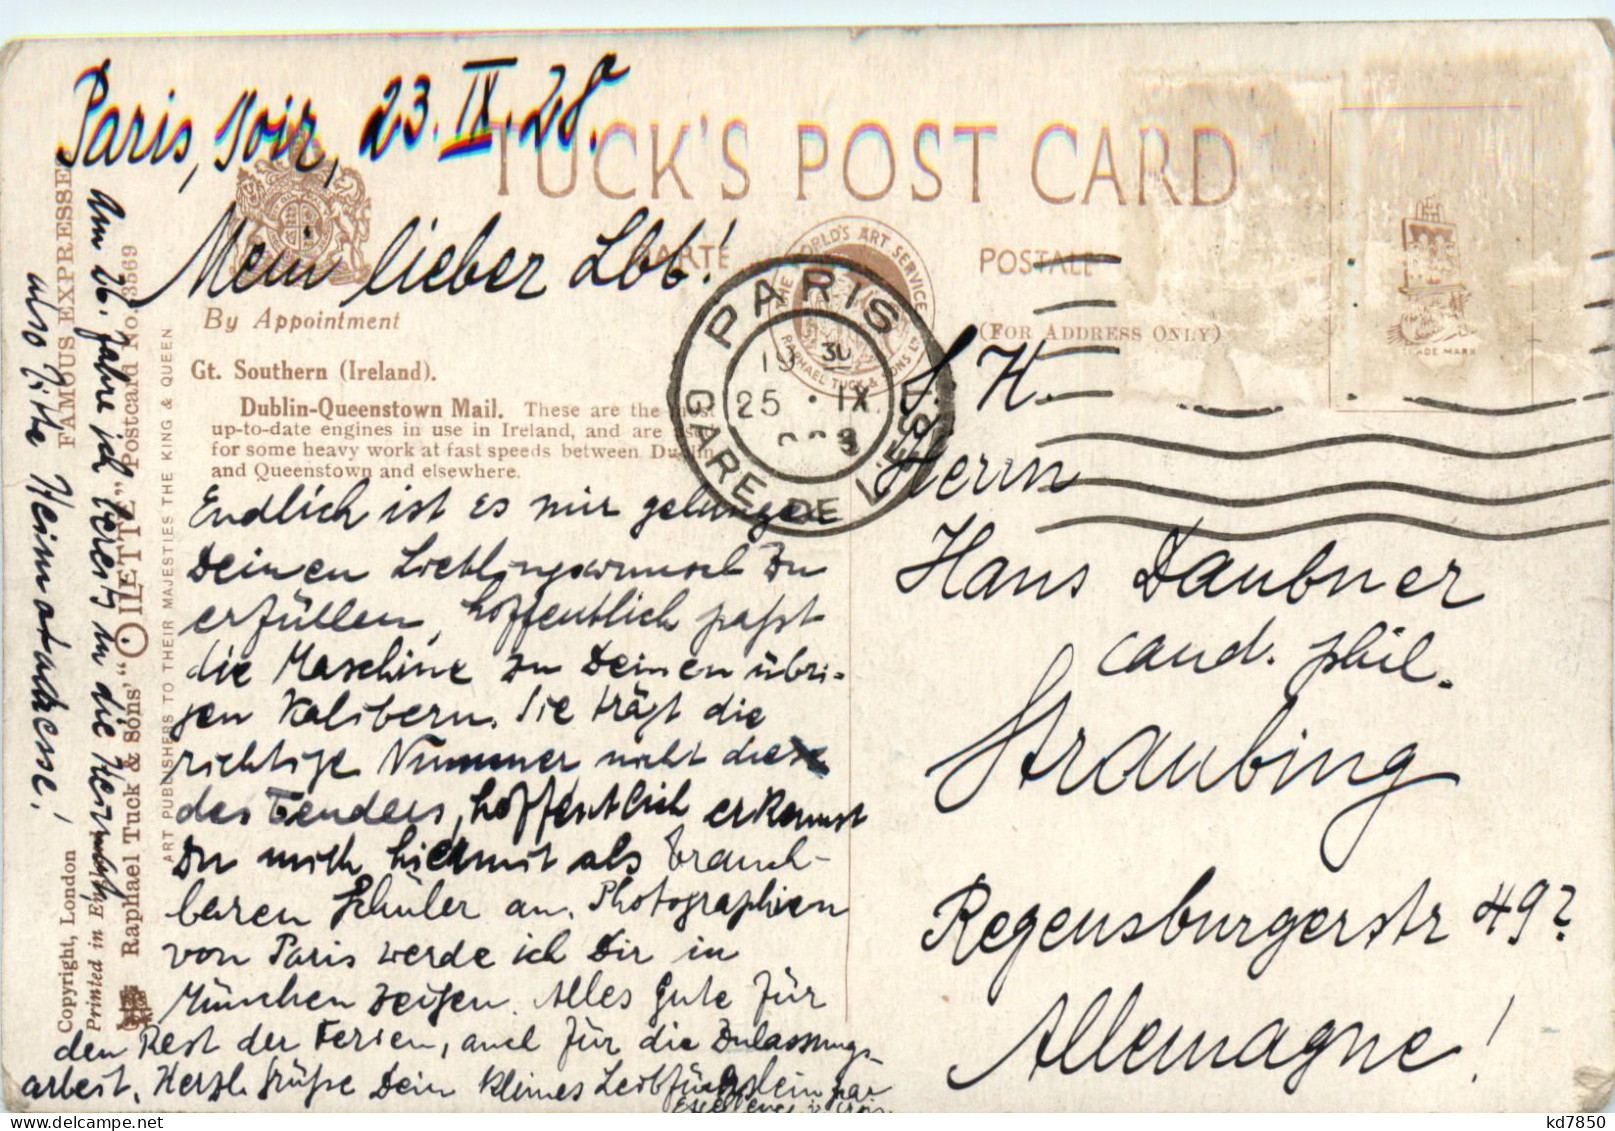 Paris, soir, 23. IX. 28.
TUCK'S POST CARD
Mein lieber Lbb!
CARTE POSTALE
By Appointment
(FOR ADDRESS ONLY)
THE WORLD'S ART SERVICE
RAPHAEL TUCK & SONS LTD
TRADE MARK
PARIS
GARE DE L'EST
19 30
25 . IX
Gt. Southern (Ireland).
Dublin-Queenstown Mail. These are the most
up-to-date engines in use in Ireland, and are used
for some heavy work at fast speeds between Dublin
and Queenstown and elsewhere.
Endlich ist es mir gelungen
Deinen Lieblingswunsch zu
erfüllen, hoffentlich paßt
die Maschine zu Deinen übri-
gen Kalibern. Sie trägt die
richtige Nummer nicht die
des Tenders, hoffentlich erkennst
Du mich hiermit als brauch-
baren Schüler an. Photographien
von Paris werde ich Dir in
München zeigen. Alles Gute für
den Rest der Ferien, auch für die Zulassungs-
arbeit. Herzl. Grüße Dein kleines Leibfüchslein par
S. H.
Herrn
Hans Daubner
cand. phil.
Straubing
Regensburgerstr 49?
Allemagne!
Am 26. fahre ich bereits in die
also bitte Heimatadresse!
FAMOUS EXPRESSES
Raphael Tuck & Sons' "OILETTE" Postcard No. 3569
ART PUBLISHERS TO THEIR MAJESTIES THE KING & QUEEN
Copyright, London
Printed in